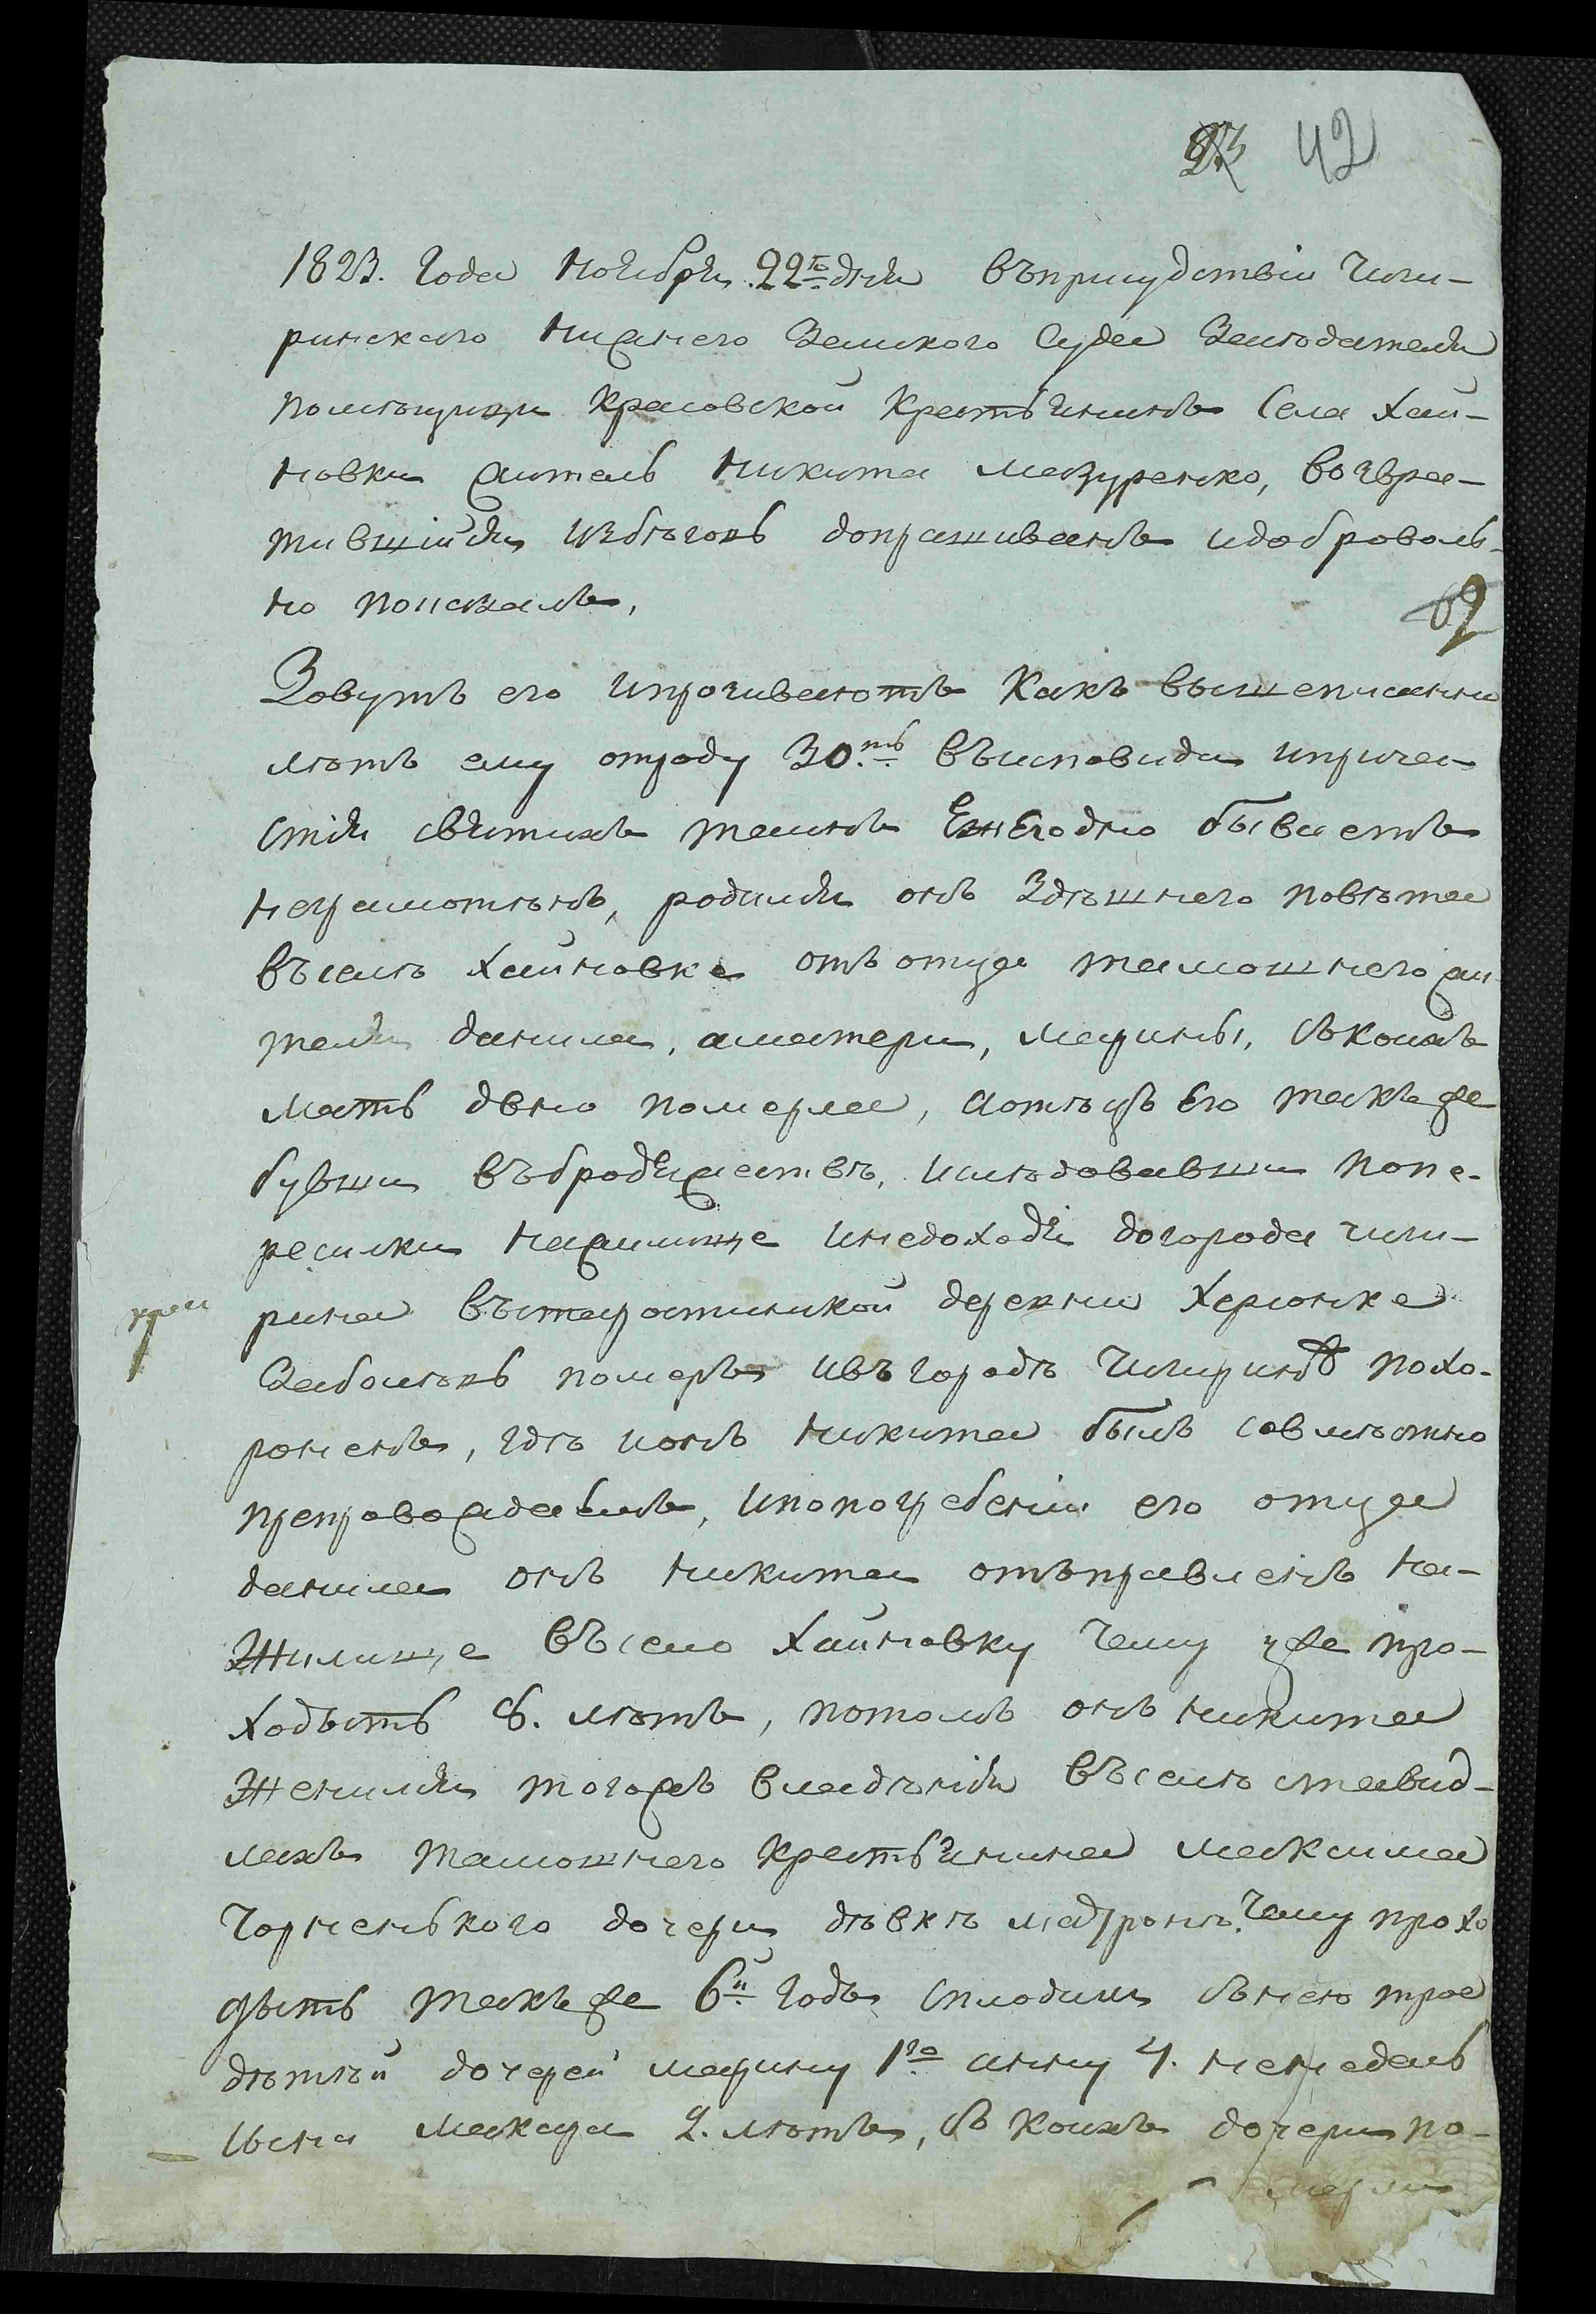 42
1823. Года Ноября 22го дня въприсудствіи Чиги-
ринскаго Нижнего Земского Суда
помѣщици Красовской Крестьянинъ Села Хай-
новки житель Никита Мазуренко, возвра-
тившійся избѣговъ допрашиванъ идоброволь-
но показалъ,
62
Зовутъ его ипрозиваютъ Какъ вышеписанно
лѣтъ ему отроду 30.ть въисповиди ипричас
стія святихъ таинъ Ежегодно бываетъ
неграмотнънъ, родился онъ Здѣшнего повѣта
въселѣ Хайновке отъ отца тамошнего жи
теля данила, аматери, марины, съ коихъ
мать двно померла, аотѣцъ Его такъже
бувши въбродяжествѣ, ислѣдовавши попе-
ресилки нажилище инедоходя догорода чиги-
рина въстаростинской деревни Херсонке
Заболѣвъ померъ ивъ городѣ Чигиринѣ похо-
роненъ, гдѣ ионъ Никита былъ совмѣстно
препровождаемъ, ипопогребеніи его отца
данила онъ никита отъправленъ на-
Жилище въ село Хайновку Чему уже про-
ходыть 8. лѣтъ, потомъ онъ никита
Женился тогожъ владѣнія въселѣ ставид-
лахъ тамошнего крестьянина максима
Чорненького дочери дѣвкѣ мадронѣ, Чему прохо
дыть такъже 6й годъ сплодили сънею трое
дѣтѣй дочерей марину 1го анну 4. ненедель
сына макара 2. лѣтъ, съ коихъ дочери по-
мерли